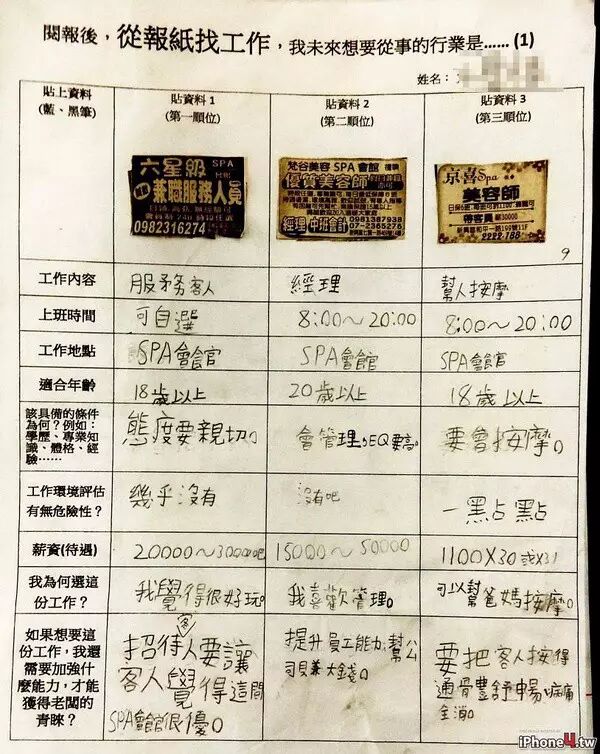 閱報後，從報紙找工作，我未來想要從事的行業是……(1)
姓名：
貼上資料 貼資料 1 貼資料 2 貼資料 3
(藍、黑筆) (第一順位) (第二順位) (第三順位)
六星級 SPA
兼職服務人員
0982316274
梵谷美容 SPA 會館
優質美容師
經理 中班會計 0981387938
07-2365276
京喜Spa
美容師
帶客員 薪30000
新興區和平一路199號11F
9
工作內容 服務客人 經理 幫人按摩
上班時間 可自選 8:00～20:00 8:00～20:00
工作地點 SPA會館 SPA會館 SPA會館
適合年齡 18歲以上 20歲以上 18歲以上
該具備的條件
為何？例如：
學歷、專業知
識、體格、經
驗……
態度要親切。 會管理,EQ要高。 要會按摩。
工作環境評估
有無危險性？
幾乎沒有 沒有吧 一點點
薪資(待遇) 20000～30000吧 15000～50000 1100X30 或X31
我為何選這
份工作？
我覺得很好玩。 我喜歡管理。 可以幫爸媽按摩。
如果想要這
份工作，我還
需要加強什
麼能力，才能
獲得老闆的
青睞？
招待客人要讓
客人覺得這間
SPA會館很優。
提升員工能力,幫公
司賺大錢。
要把客人按得
通骨豐舒暢,痠痛
全消。
iPhone4.tw